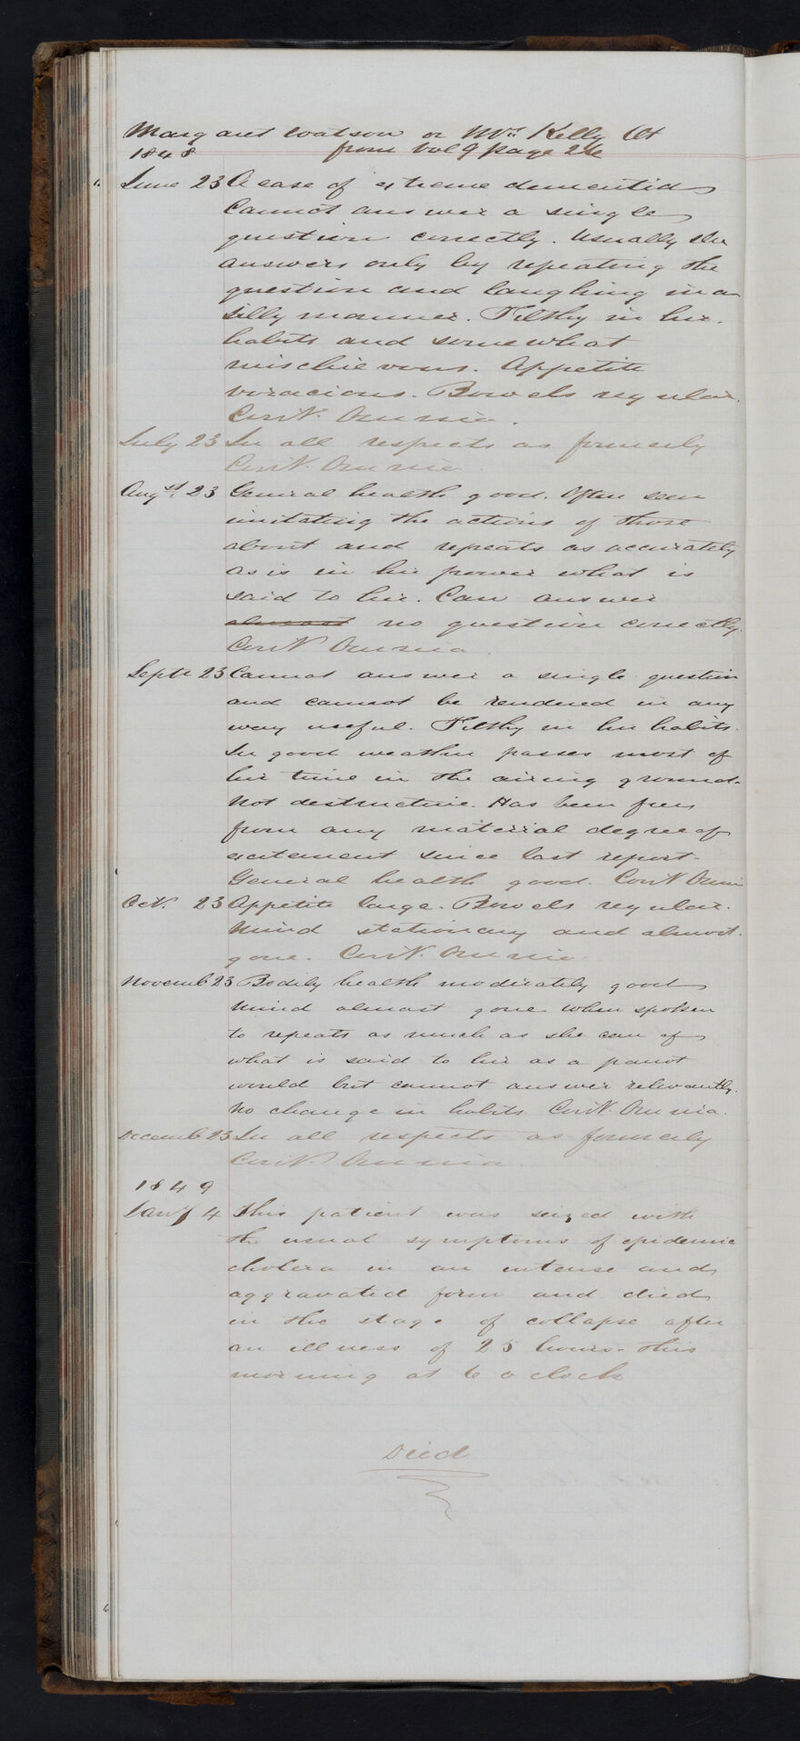 Margaret Watson or Mrs Kelly
1848 from Vol 9 page 26
June 23 A case of extreme dementia
Cannot answer a single
question correctly. Usually she
answers only by repeating the
question and laughing in a
silly manner. Filthy in her
habits and somewhat
mischievous. Appetite
voracious. Bowels regular.
Cont. Omnia.
July 23 In all respects as formerly
Cont. Omnia.
Augst. 23 General health good. Often seen
imitating the actions of those
about and repeats as accurately
as is in her power what is
said to her. Can answer
almost no question correctly.
Cont Omnia.
Septr 23 Cannot answer a single question
and cannot be rendered in any
way useful. Filthy in her habits.
In good weather passes most of
her time in the airing ground.
Not destructive. Has been free
from any material degree of
excitement since last report.
General health good. Cont Omnia
Oct. 23 Appetite large. Bowels regular.
Mind stationary and almost
gone. Cont. Omnia.
Novemb 23 Bodily health moderately good
Mind almost gone when spoken
to repeats as much as she can of
what is said to her as a parrot
would but cannot answer relevantly.
No change in habits. Cont. Omnia.
Decemb 23 In all respects as formerly
Cont. Omnia.
1849
Jany 4 This patient was seized with
the usual symptoms of epidemic
cholera in an intense and
aggravated form and died
in the stage of collapse after
an illness of 25 hours. this
morning at 6 o clock
Died